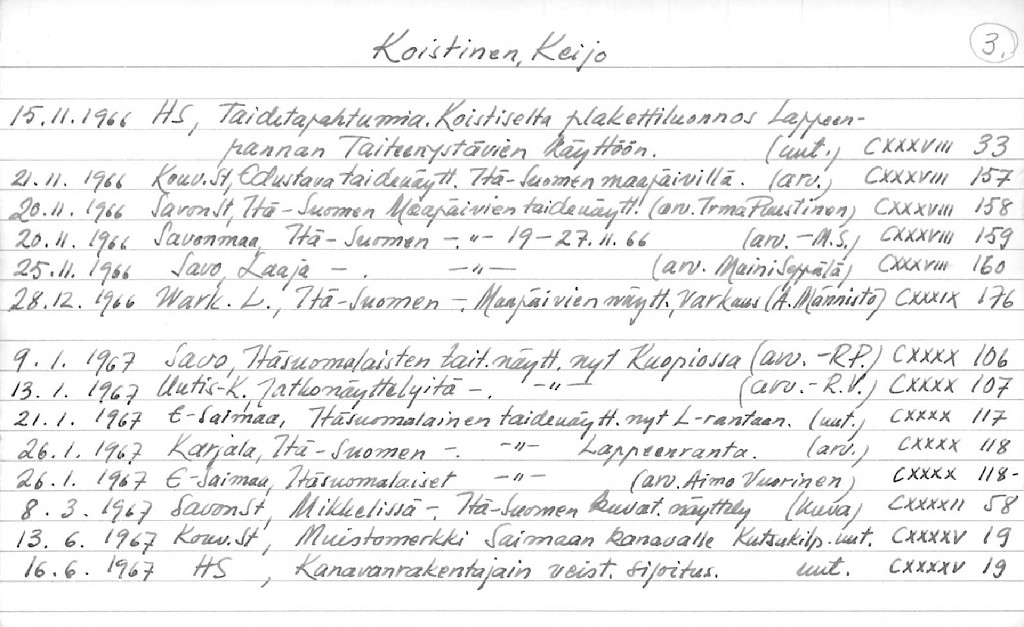 Koistinen, Keijo
3.
15.11.1966 HS, Taidetapahtumia. Koistiselta plakettiluonnos Lappeen-
rannan Taiteenystävien käyttöön. (uut.) CXXXVIII 33
21.11.1966 Kouv.St, Edustava taidenäytt. Itä-Suomen maapäivillä. (arv.) CXXXVIII 157
20.11.1966 SavonSt, Itä-Suomen Maapäivien taidenäytt. (arv. Irma Puustinen) CXXXVIII 158
20.11.1966 Savonmaa, Itä-Suomen -. -"- 19-27.11.66 (arv. -M.S.) CXXXVIII 159
25.11.1966 Savo, Laaja -. -"- (arv. Maini Seppälä) CXXXVIII 160
28.12.1966 Wark. L., Itä-Suomen -. Maapäivien näytt., Varkaus (A. Männistö) CXXXIX 176
9.1.1967 Savo, Itäsuomalaisten tait. näytt. nyt Kuopiossa (arv. -R.P.) CXXXX 106
13.1.1967 Uutis-K, Jatkonäyttelyitä -. -"- (arv. -R.V.) CXXXX 107
21.1.1967 E-Saimaa, Itäsuomalainen taidenäytt. nyt L-rantaan. (uut.) CXXXX 117
26.1.1967 Karjala, Itä-Suomen -. -"- Lappeenranta. (arv.) CXXXX 118
26.1.1967 E-Saimaa, Itäsuomalaiset -"- (arv. Aimo Vuorinen) CXXXX 118-
8.3.1967 SavonSt, Mikkelissä -. Itä-Suomen kuvat. näyttely (kuva) CXXXXII 58
13.6.1967 Kouv.St, Muistomerkki Saimaan kanavalle Kutsukilp. uut. CXXXXV 19
16.6.1967 HS, Kanavanrakentajain veist. sijoitus. uut. CXXXXV 19